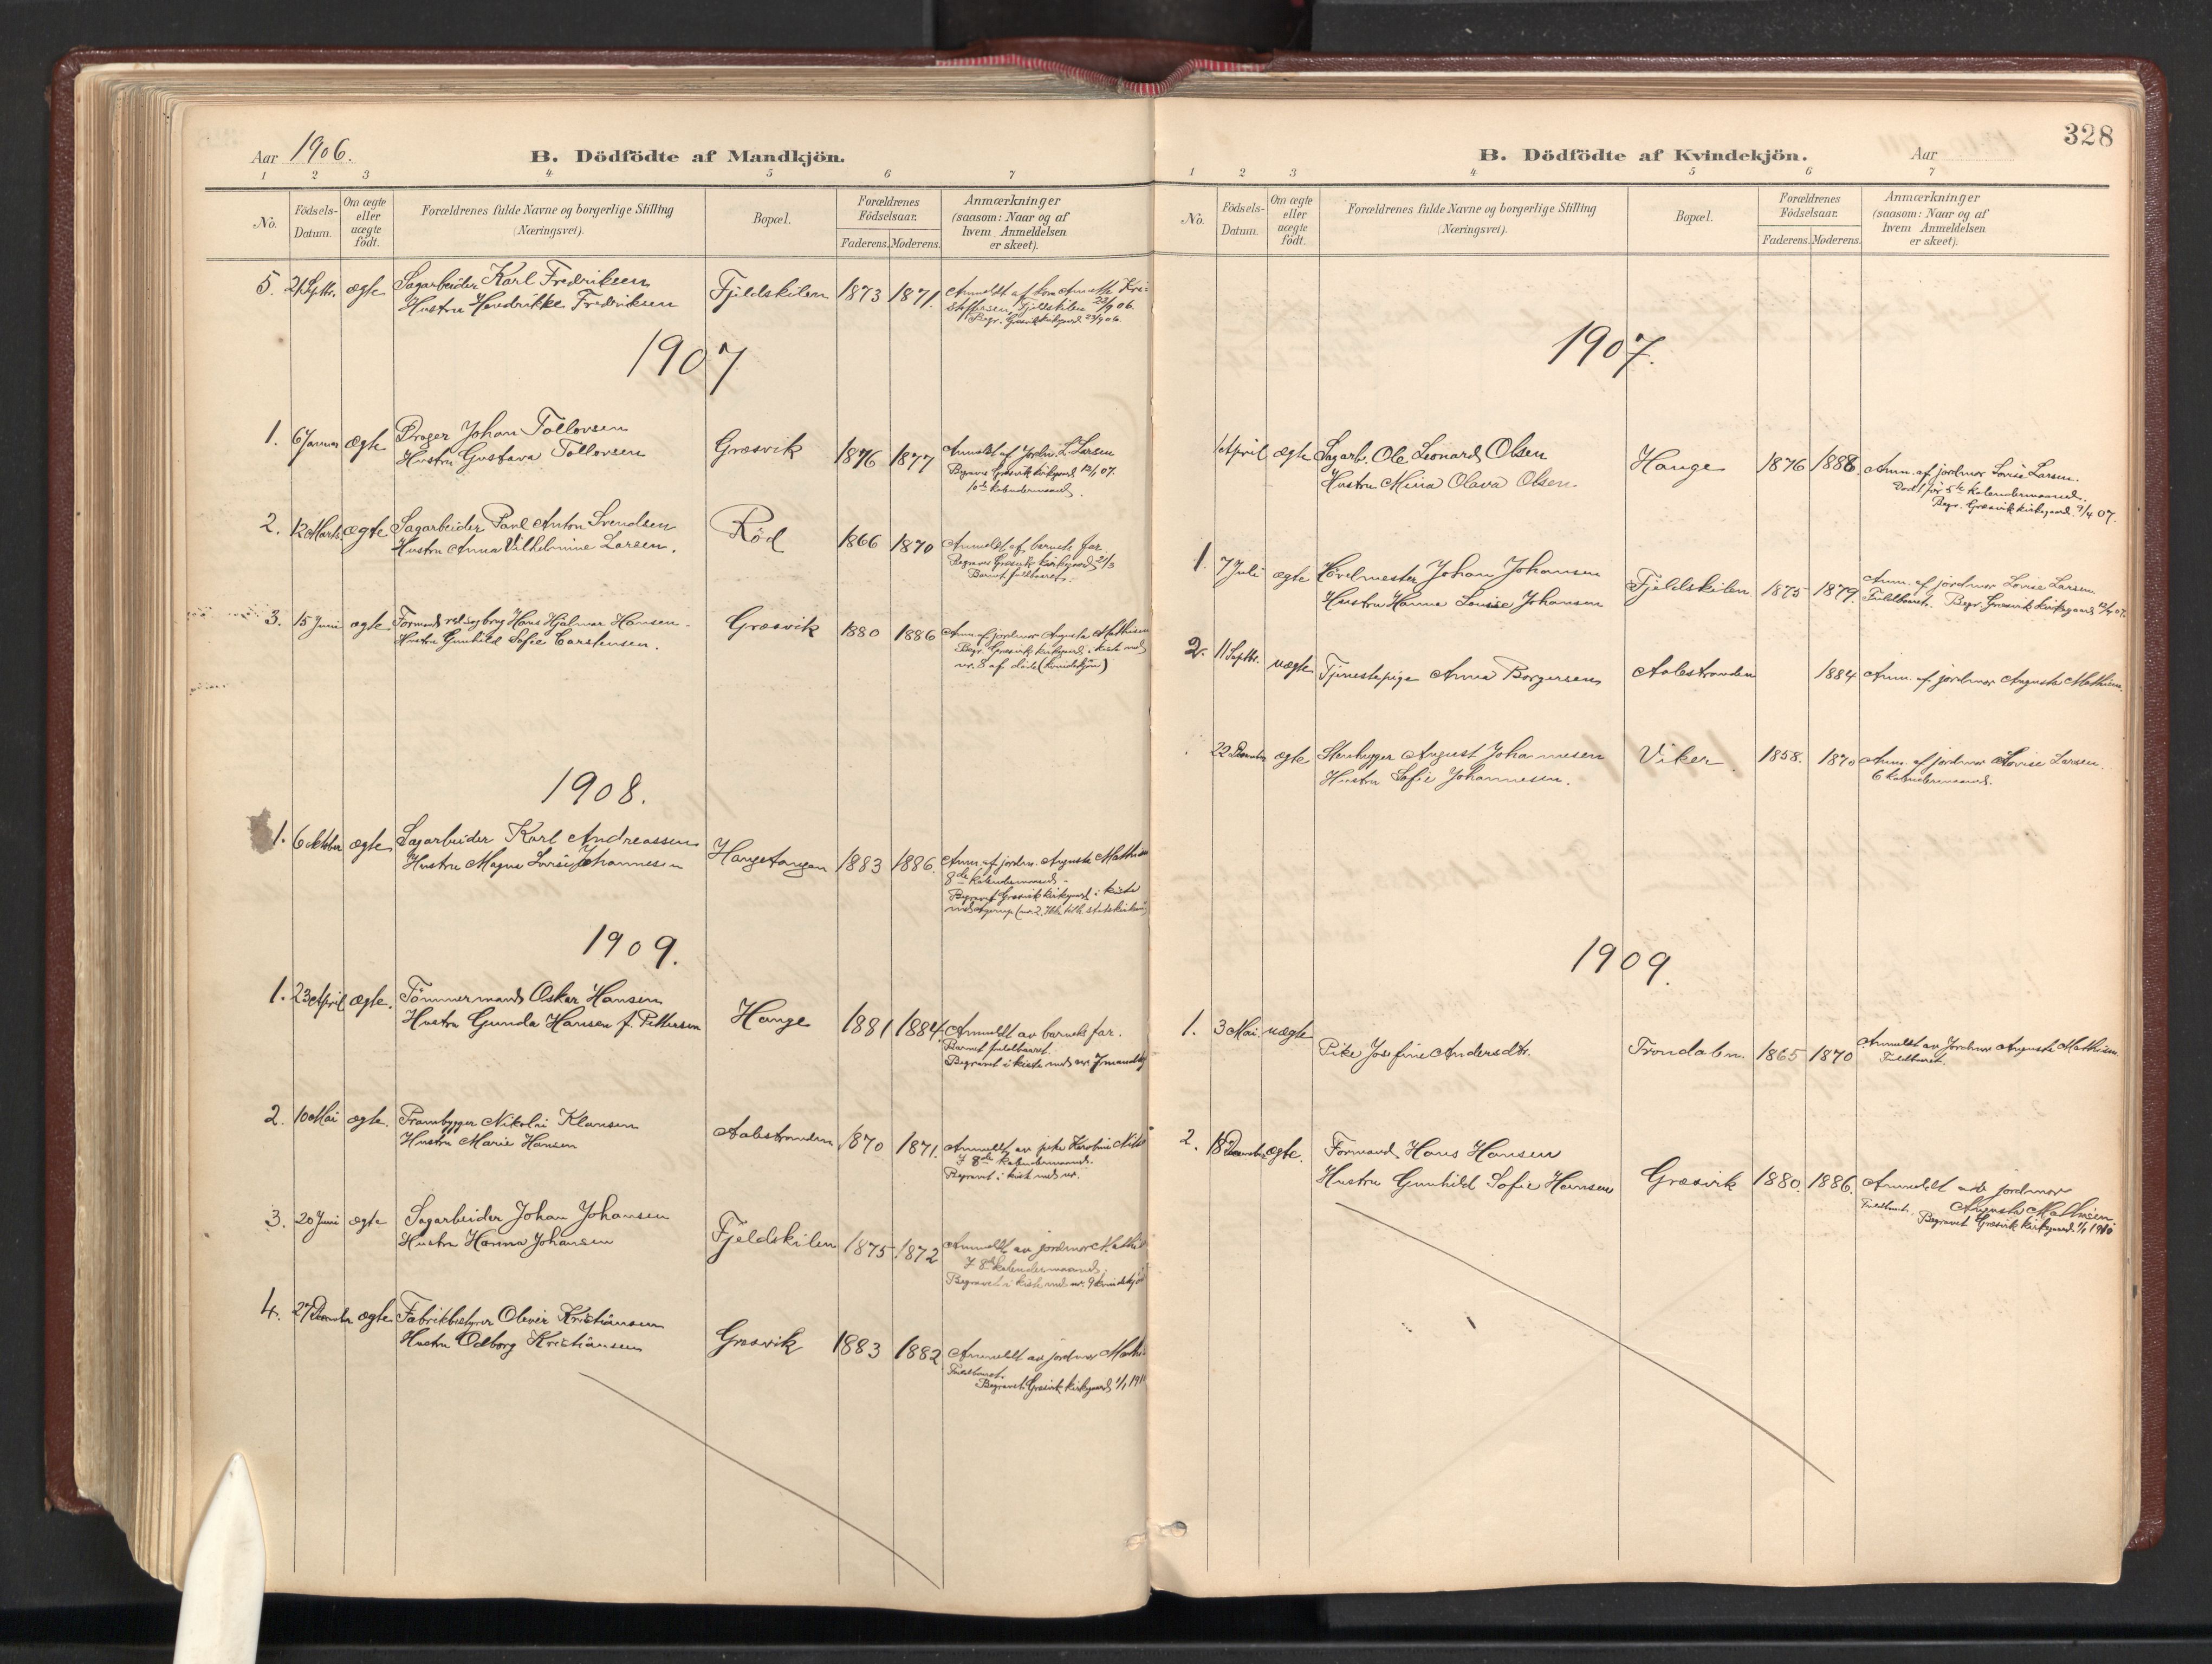 Aar 1906.
B. Dödfödte af Mandkjön.
1 2 3 4 5 6 7
No.
Födsels-
Datum.
Om ægte
eller
uægte
födt.
Forældrenes fulde Navne og borgerlige Stilling
(Næringsvei).
Bopæl.
Forældrenes
Födselsaar.
Faderens. Moderens.
Anmærkninger
(saasom: Naar og af
hvem Anmeldelsen
er skeet).
5. 21 Septbr. ægte Sagarbeider Karl Fredriksen Fjeldskilen 1873 1871. Anmeldt af
Hustru Hendrikke Fredriksen Fjeldskilen 23/9 06.
Begr. Græsvik kirkegaard 23/9 06.
1907
1. 6 Januar ægte Johan Tollovsen Græsvik 1876 1877 Anmeldt af Jordm. L. Larsen
Hustru Gustava Tollovsen Begravet Græsvik kirkegaard 12/1 07.
10de kalendermaaned.
2. 12 Marts ægte Sagarbeider Paul Anton Svendsen Röd 1866 1870 Anmeldt af barnets far.
Hustru Anna Vilhelmine Larsen. Begravet Græsvik kirkegaard 21/3
Barnet fuldbaaret.
3. 15 Juni ægte Formand ved Hans Hjalmar Hansen Græsvik 1880 1886 Anm. af jordmor Augusta Mathisen
Hustru Gunhild Sofie Carstensen. Begr. Græsvik kirkegaard i kiste med
nr. 8 af döde (kvindekjön)
1908.
1. 6 Oktober ægte Sagarbeider Karl Andreassen Haugetangen 1883 1886. Anm. af jordm. Augusta Mathisen
Hustru Magna Lovise Johannesen 8de kalendermaaned.
Begravet Græsvik kirkegaard i kiste
1909.
1. 23 April ægte. Tömmermand Oskar Hansen Hauge 1881 1884 Anmeldt av barnets far.
Hustru Gunda Hansen f. Pettersen Barnet fuldbaaret.
Begravet i kiste med nr 7 mandkj
2. 10 Mai ægte. Prambygger Nikolai Klausen Aalestranden 1870 1871. Anmeldt av pike
Hustru Marie Hansen I 8de kalendermaaned.
Begravet i kiste med nr.
3. 20 Juni ægte Sagarbeider Johan Johansen Fjeldskilen 1875 1872 Anmeldt av jordmor Mathi
Hustru Hanna Johansen I 8de kalendermaaned.
Begravet i kiste med nr. 9 kvindekjö
4. 27 December ægte Fabrikbestyrer Olever Kristiansen Græsvik 1883 1882 Anmeldt av jordmor Mathi
Hustru Odborg Kristiansen Fuldbaaret.
Begravet Græsvik kirkegaard 1/1 191
328
B. Dödfödte af Kvindekjön. Aar
1 2 3 4 5 6 7
No.
Födsels-
Datum.
Om ægte
eller
uægte
födt.
Forældrenes fulde Navne og borgerlige Stilling
(Næringsvei).
Bopæl.
Forældrenes
Födselsaar.
Faderens. Moderens.
Anmærkninger
(saasom: Naar og af
hvem Anmeldelsen
er skeet).
1907.
1 April ægte Sagarb. Ole Leonard Olsen Hauge 1876 1888 Anm. af jordmor Lovise Larsen.
Hustru Mina Olava Olsen Död för 5te kalendermaaned.
Begr. Græsvik kirkegaard 9/4 07.
1. 7 Juli ægte Hövelmester Johan Johansen Fjeldskilen 1875 1879. Anm. af jordmor Lovise Larsen.
Hustru Hanna Louise Johansen Fuldbaaret. Begr. Græsvik kirkegaard 12/7 07.
2. 11 Septbr. uægte Tjenestepige Anna Borgersen Aalestranden 1884 Anm. af jordmor Augusta Mathisen.
22 December ægte Stenhugger August Johannesen Viker 1858. 1870 Anm. af jordmor Lovise Larsen.
Hustru Sofie Johannesen. 6 kalendermaaned.
1909.
1. 3 Mai uægte Pike Josefine Andersdtr. Trondalen. 1865 1870 Anmeldt av Jordmor Augusta Mathisen.
Fuldbaaret.
2. 18 December ægte. Formand Hans Hansen Græsvik 1880. 1886. Anmeldt av jordmor
Hustru Gunhild Sofie Hansen Augusta Mathisen
Fuldbaaret. Begravet Græsvik kirkegaard 1/1 1910